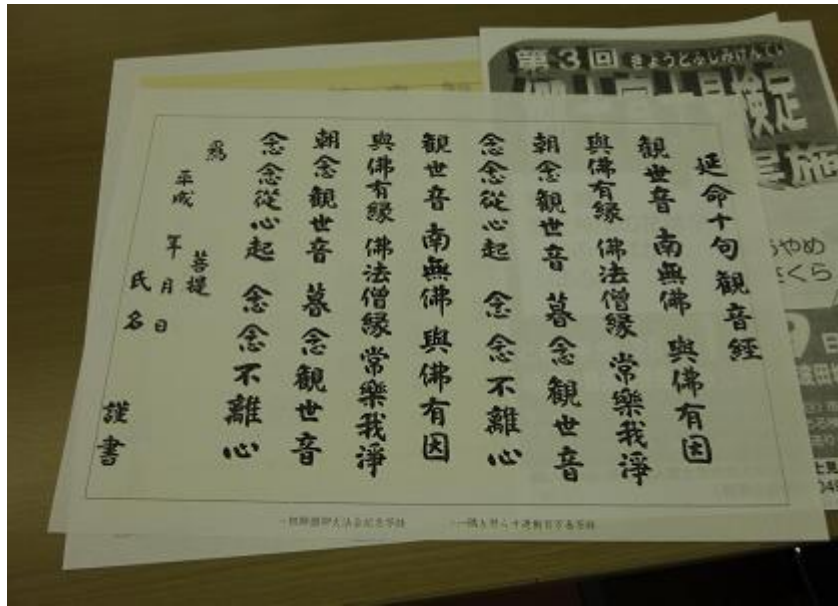 延命十句観音經
観世音 南無佛 與佛有因
與佛有縁 佛法僧縁 常樂我淨
朝念観世音 暮念観世音
念念從心起 念念不離心
観世音 南無佛 與佛有因
與佛有縁 佛法僧縁 常樂我淨
朝念観世音 暮念観世音
念念從心起 念念不離心
爲 菩提
平成 年 月 日
氏名 謹書
第3回 きょうとふじみけんてい
検定
実施
うやめ
さくら
日